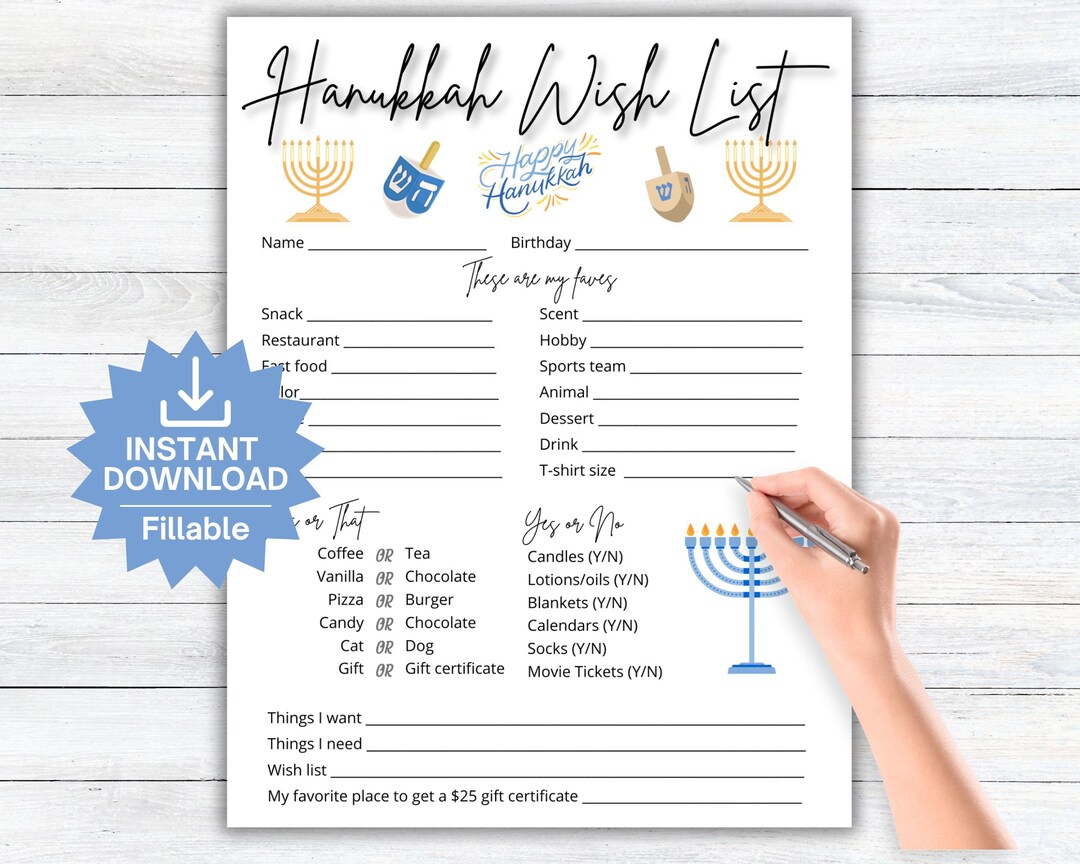 Hanukkah Wish List
Happy
Hanukkah
ש ה
ש
Name Birthday
These are my faves
Snack
Restaurant
food
Scent
Hobby
Sports team
Animal
Dessert
Drink
T-shirt size
INSTANT
DOWNLOAD
Fillable
or That
Coffee OR Tea
Vanilla OR Chocolate
Pizza OR Burger
Candy OR Chocolate
Cat OR Dog
Gift OR Gift certificate
Yes or No
Candles (Y/N)
Lotions/oils (Y/N)
Blankets (Y/N)
Calendars (Y/N)
Socks (Y/N)
Movie Tickets (Y/N)
Things I want
Things I need
Wish list
My favorite place to get a $25 gift certificate